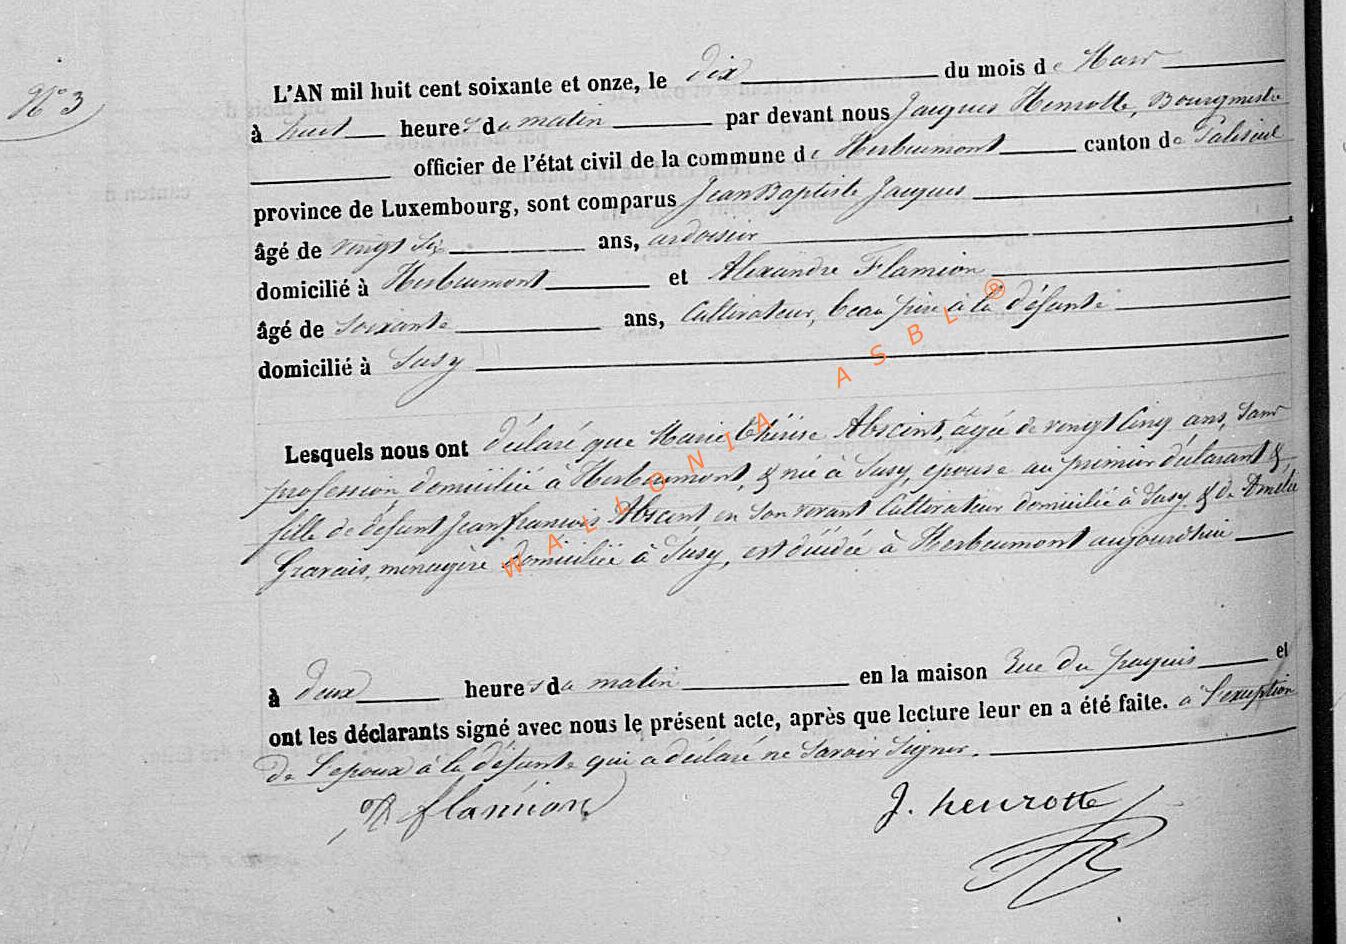 N° 3
L'AN mil huit cent soixante et onze, le dix du mois de Mars
à huit heures du matin par devant nous Jacques Henrotte, Bourgmestre
officier de l'état civil de la commune de Herbeumont canton de Paliseul
province de Luxembourg, sont comparus Jean Baptiste Jacques
âgé de vingt six ans, ardoisier
domicilié à Herbeumont et Alexandre Flamion
âgé de soixante ans, Cultivateur, beau père à la défunte
domicilié à Suxy
Lesquels nous ont déclaré que Marie Thérèse Abscint, âgée de vingt cinq ans, Sans
profession, domiciliée à Herbeumont, & née à Suxy, épouse au premier déclarant &
fille de défunt Jean françois Abscint en son vivant Cultivateur domicilié à Suxy & de Amélie
Gravais, menagère domiciliée à Suxy, est décédée à Herbeumont aujourd'hui
à deux heures du matin en la maison Rue du et
ont les déclarants signé avec nous le présent acte, après que lecture leur en a été faite. à l'exception
de l'epoux à la défunte qui a déclaré ne Savoir Signer.
A flamion J. henrotte
WALLONIA ASBL ®